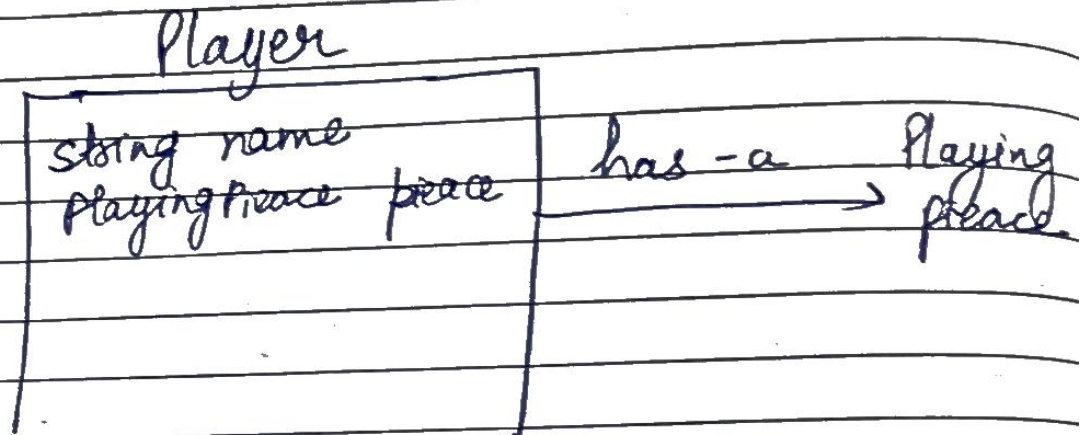 Player
string name
playingPieace pieace
has-a
Playing
pieace.